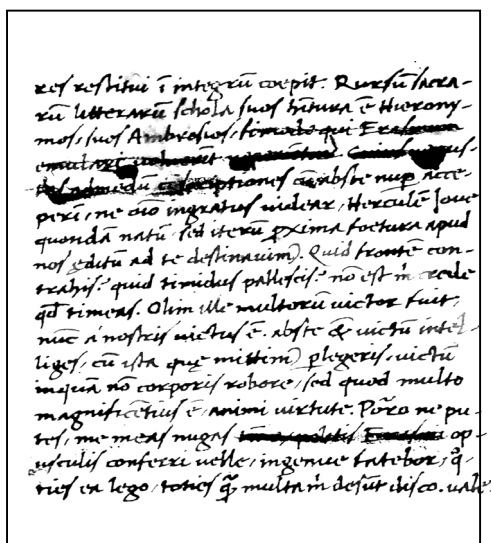 res restitui ī integrū coepit. Rursū sacra-
rū litterarū schola suos hītura ē Hierony-
mos, suos Ambrosios, si modo qui Erasmum
emulari uoluerit
admodū scriptiones cū abste nup acce-
peri, ne oīo ingratus uidear, Herculē Ioue
quondā natū, sed iterū pxima foetura apud
nos editū ad te destinauim). Quid frontē con-
trahis? quid timidus pallescis? nō est m̄ crede
qd timeas. Olim ille multorū uictor fuit,
nūc a nostris uictus ē. abste & uictū intel-
liges, cū ista quę mittim) plegeris, uictū
inquā nō corporis robore, sed quod multo
magnificētius ē, animi uirtute. Porro ne pu-
tes, me meas nugas Erasmi op-
usculis conferri uelle, ingenue fatebor, q-
ties ea lego, toties q̄ multa m̄ desūt disco. uale.